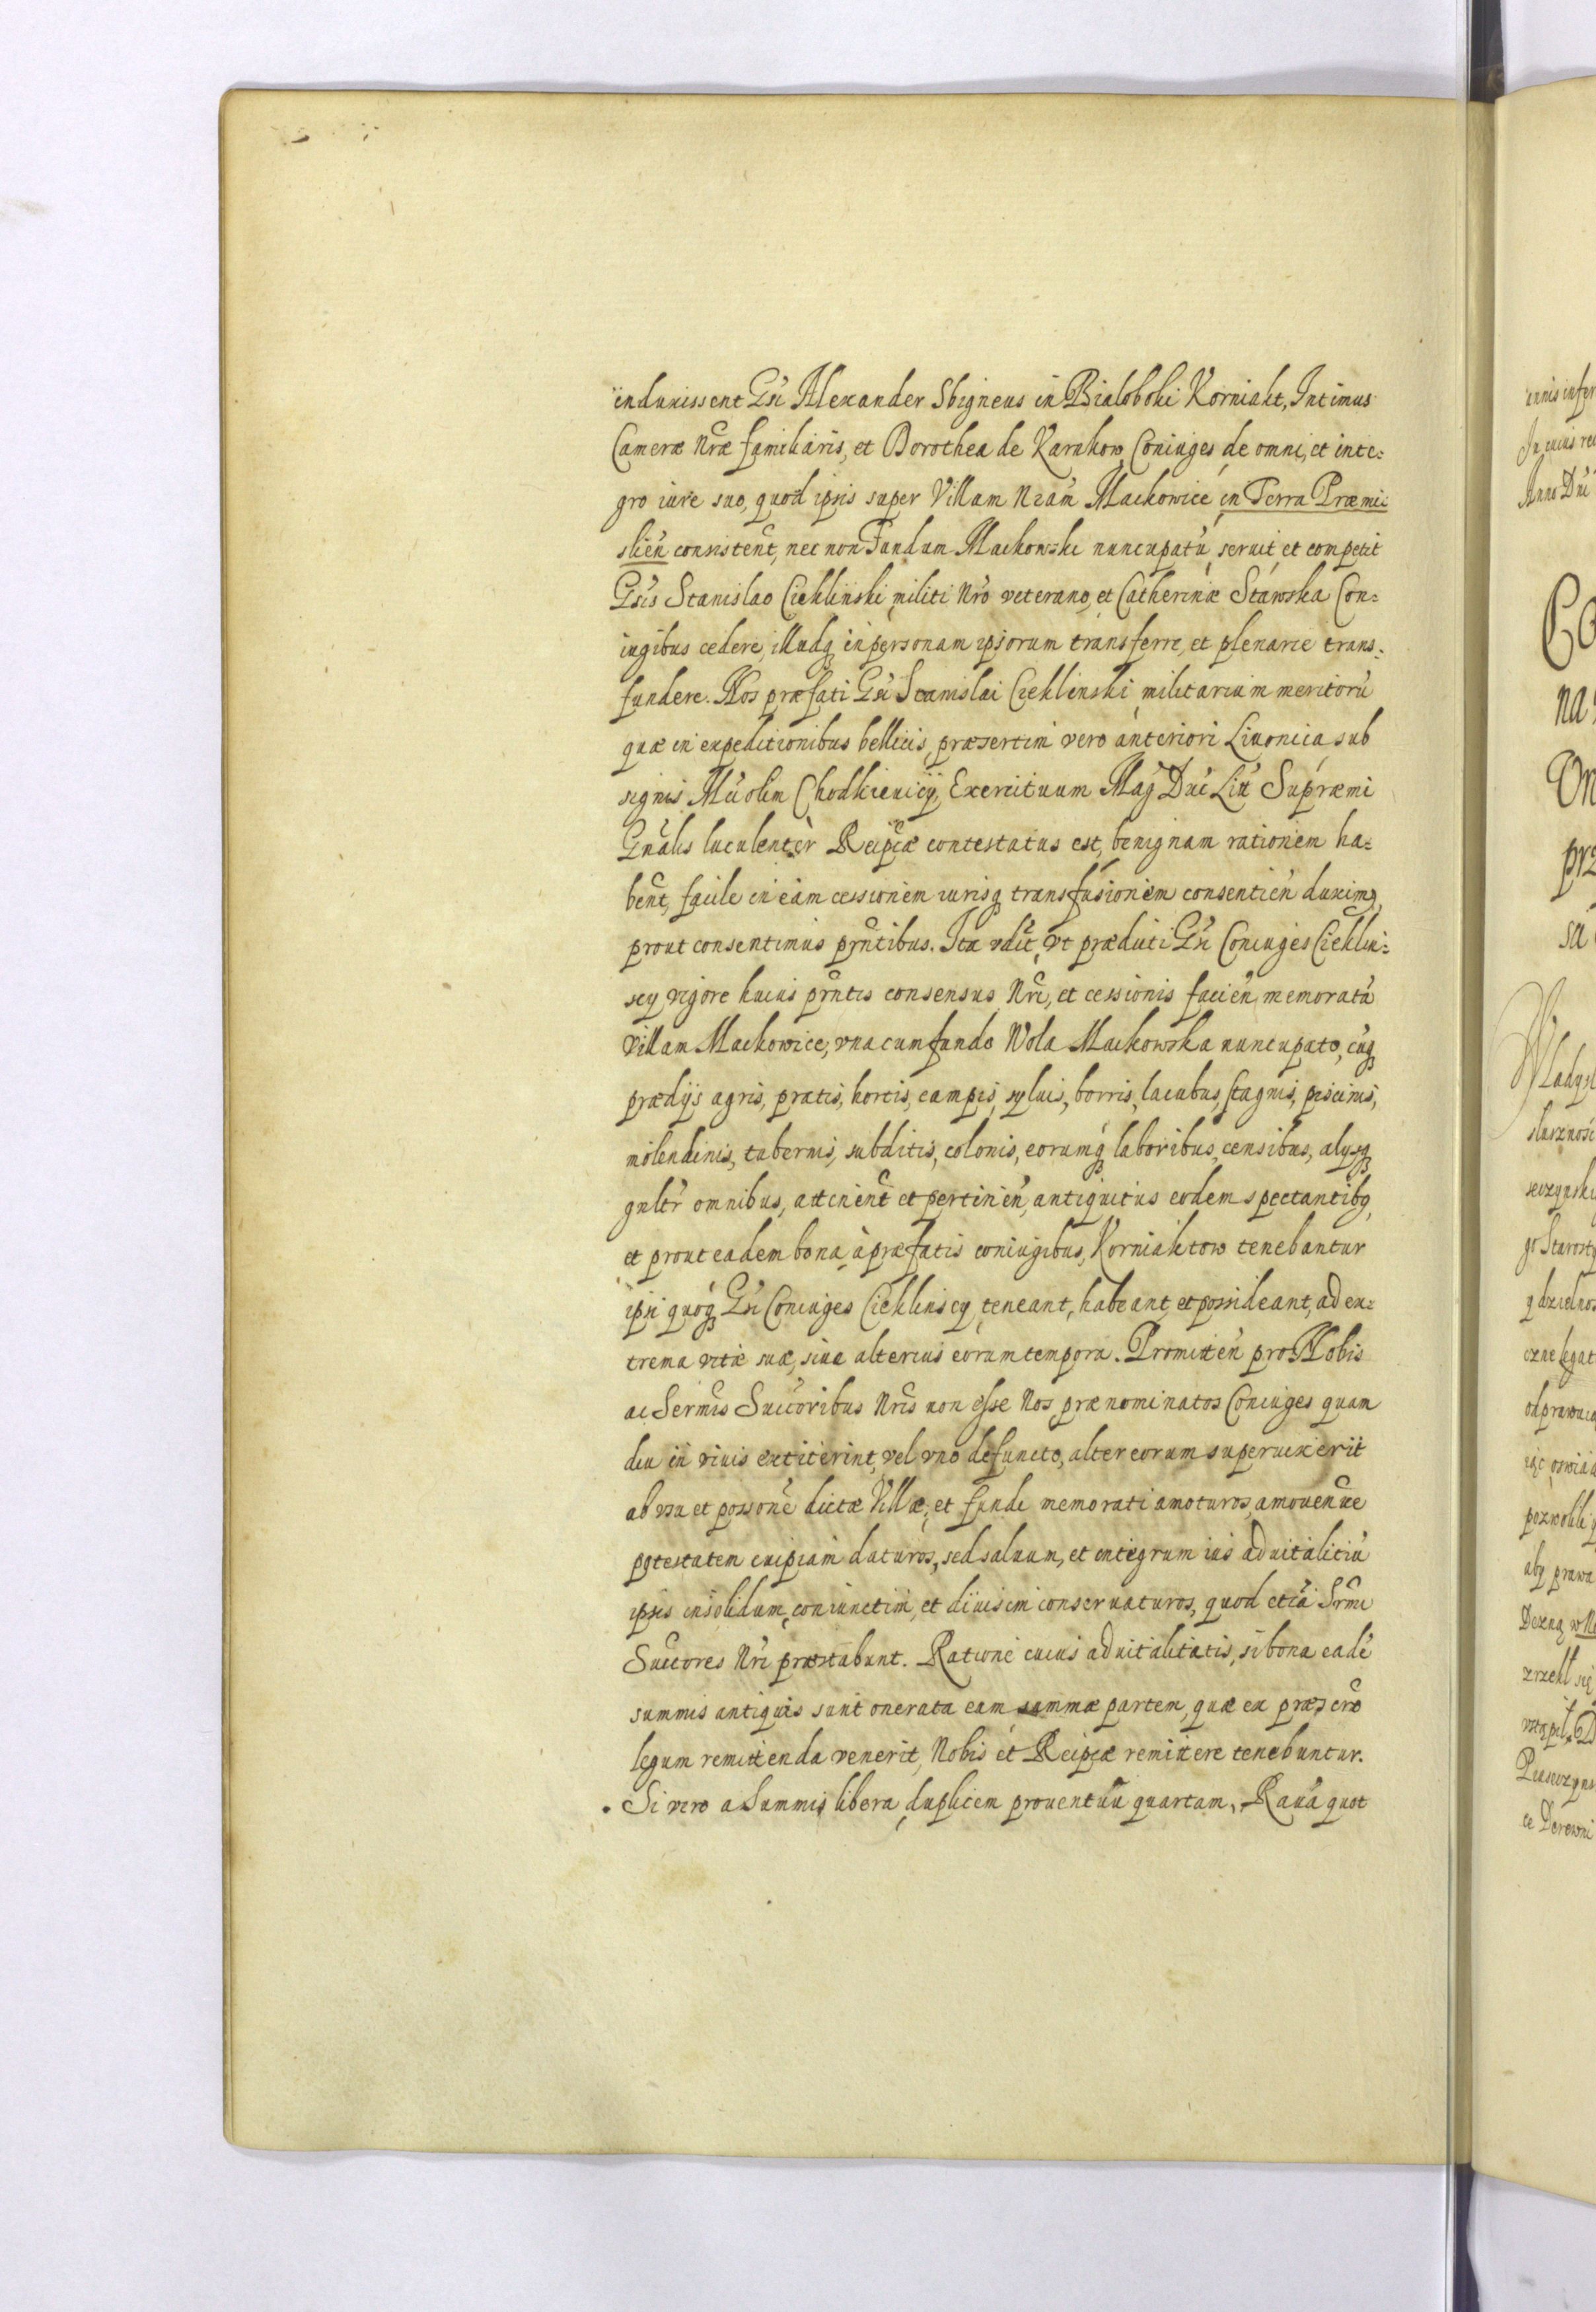 induxissent Gsi Alexander Sbigneus in Bialoboki Korniakt, Intimus
Cameræ Nræ familiaris, et Dorothea de Karnkow Coniuges de omni, et inte=
gro iure suo, quod ipsis super Villam Nram Mackowice in Terra Præmi=
slien consistent, nec non Fundum Mackowski nuncupatũ seruit, et competit
Gsis Stanislao Ciekliński militi Nro veterano, et Catherinæ Stawska Con=
iugibus cedere, illudq in personam ipsorum transferre, et plenarie trans=
fundere. Nos præfati Gsi Stanislai Ciekliński militarium meritorũ
quæ in expeditionibus bellicis præsertim vero anteriori Liuonica sub
signis Mci olim Chodkieuicij, Exercituum Mag Duc Lit Supræmi
Gnalis luculentèr Reipcæ contestatus est, benignam rationem ha=
bent, facile in eam cessionem iurisq transfusionem consentien duximq,
prout consentimus prntibus. Ita vdlt, vt prædicti Gsi Coniuges Cieklin=
scy vigore huius prntis consensus Nri, et cessionis facien memoratã
Villam Mackowice, vna cum fundo Wola Mackowska nuncupato, cuq
prædijs agris, pratis, hortis, campis, syluis, borris, lacubus, stagnis, piscinis,
molendinis, tabernis, subditis, colonis, eorumq laboribus, censibus, alysq
gnltr omnibus, attinent et pertinen, antiquitus eodem spectantibq,
et prout eadem bona, à præfatis coniugibus, Korniaktow tenebantur
ipsi quoq Gsi Coniuges Cieklinscy teneant, habeant, et possideant, ad ex=
trema vitæ suæ, siue alterius eorum tempora. Promitten pro Nobis
ac Sermis Succoribus Nris non esse Nos prænominatos Coniuges quam
diu in viuis extiterint, vel vno defuncto, alter eorum superuixerit
ab vsu et possone dictæ Villæ, et fundi memorati amoturos, amouendæ
potestatem cuipiam daturos, sed saluum, et integrum ius aduitalitiũ
ipsis insolidum, coniunctim, et diuisim conseruaturos, quod etiã Srmi
Succores Nri præstabunt. Ratione cuius aduitalitatis, si bona eadẽ
summis antiquis sunt onerata eam summæ partem, quæ ex præscro
legum remittenda venerit, Nobis et Reipcæ remittere tenebuntur.
Si vero a Summis libera, duplicem prouentuũ quartam, Rauã quot